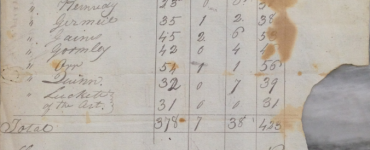 " Kennedy 25 0
" Germell 35 1 2 38
" Gains 45 2 6 53
" Gormley 42 0 4
" Orr 51 1 1 55
" Quinn 32 0 7 39
" Luckett
of the Art. 31 0 0 31
Total 378 7 38 423